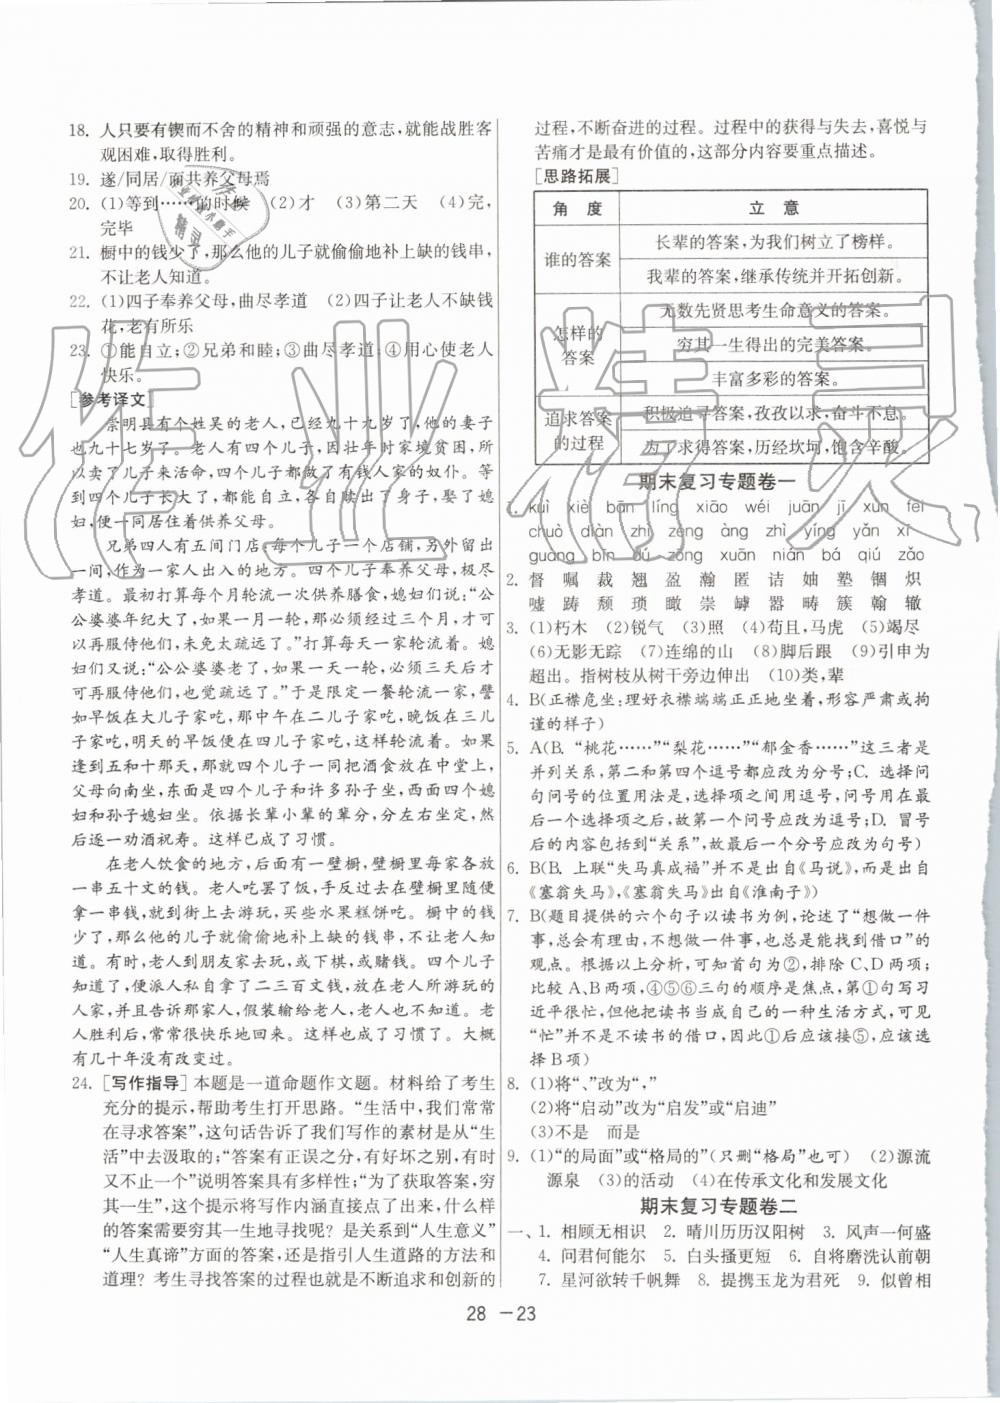 18. 人只要有锲而不舍的精神和顽强的意志,就能战胜客
观困难,取得胜利。
19. 遂/同居/而共养父母焉
20. (1)等到……的时候 (2)才 (3)第二天 (4)完,
完毕
21. 橱中的钱少了,那么他的儿子就偷偷地补上缺的钱串,
不让老人知道。
22. (1)四子奉养父母,曲尽孝道 (2)四子让老人不缺钱
花,老有所乐
23. ①能自立;②兄弟和睦;③曲尽孝道;④用心使老人
快乐。
[参考译文]
崇明县有个姓吴的老人,已经九十九岁了,他的妻子
也九十七岁了。老人有四个儿子,因壮年时家境贫困,所
以卖了儿子来活命,四个儿子都做了有钱人家的奴仆。等
到四个儿子长大了,都自己卖力赎出了身子,娶了媳
妇,便一同居住着供养父母。
兄弟四人有五间门店,每个儿子一个店铺,另外留出
一间,作为一家人出入的地方。四个儿子奉养父母,极尽
孝道。最初打算每个月轮流一次供养膳食,媳妇们说:“公
公婆婆年纪大了,如果一月一轮,必须过三个月后,才
可再服侍他们,未免太疏远了。”打算每天一家轮流。媳
妇们又说:“公公婆婆老了,如果一天一轮,必须三天后才
可再服侍他们,也觉疏远了。”于是规定一餐轮流一家,譬
如早饭在大儿子家吃,那中午在二儿子家吃,晚饭在三儿
子家吃,明天的早饭便在四儿子家吃,这样轮流着。如果
逢到五和十那天,那就四个儿子一同把酒食放在中堂上,
父母向南坐,东面是四个儿子和许多孙子坐,西面四个媳
妇和孙子媳妇坐。依据长辈小辈的辈分,分左右坐定,然
后逐一劝酒祝寿。这样已成了习惯。
在老人饮食的地方,后面有一壁橱,壁橱里每家各放
一串五十文的钱。老人吃罢了饭,手反过去在橱里随便
拿一串钱,就到街上去游玩,买些水果糕饼吃。橱中的钱
少了,那么他的儿子就偷偷地补上缺的钱串,不让老人知
道。有时,老人到朋友家去玩,或下棋,或赌钱。四个儿子
知道了,便派人私自拿了二三百文钱,放在老人所游玩的
人家,并且告诉那家人,假装输给老人,老人也不知道。老
人胜利后,常常很快乐地回来。这样也成了习惯了。大概
有几十年没有改变过。
24. [写作指导]本题是一道命题作文题。材料给了考生
充分的提示,帮助考生打开思路。“生活中,我们常常
在寻求答案”,这句话告诉了我们写作的素材是从“生
活”中去汲取的;“答案有正误之分,有好坏之别,有时
又不止一个”说明答案具有多样性;“为了获取答案,穷
其一生”,这个提示将写作内涵直接点了出来,什么样
的答案需要穷其一生地寻找呢?是关系到“人生意义”
“人生真谛”方面的答案,还是指引人生道路的方法和
道理?考生寻找答案的过程也就是不断追求和创新的
过程,不断奋进的过程。过程中的获得与失去,喜悦与
苦痛才是最有价值的,这部分内容要重点描述。
[思路拓展]
角 度 立 意
谁的答案 长辈的答案,为我们树立了榜样。
我辈的答案,继承传统并开拓创新。
怎样的
答案
无数先贤思考生命意义的答案。
穷其一生得出的完美答案。
丰富多彩的答案。
追求答案
的过程
积极追寻答案,孜孜以求,奋斗不息。
为了求得答案,历经坎坷,饱含辛酸。
期末复习专题卷一
1. kuì xiè bān líng xiāo wéi juān jī xùn fěi
chuò diàn zhì zèng àng zhì yíng yǎn xī
guǎng bīn dú zōng xuān nián bá qiú zǎo
2. 督 嘱 裁 翘 盈 瀚 匿 诘 妯 塾 锢 炽
嘘 踌 颓 琐 瞰 祟 罅 嚣 畴 簇 翰 辙
3. (1)朽木 (2)锐气 (3)照 (4)苟且,马虎 (5)竭尽
(6)无影无踪 (7)连绵的山 (8)脚后跟 (9)引申为
超出。指树枝从树干旁边伸出 (10)类,辈
4. B(正襟危坐:理好衣襟端端正正地坐着,形容严肃或拘
谨的样子)
5. A(B. “桃花……”“梨花……”“郁金香……”这三者是
并列关系,第二和第四个逗号都应改为分号;C. 选择问
句问号的位置用法是,选择项之间用逗号,问号用在最
后一个选择项之后,故第一个问号应改为逗号;D. 冒号
后的内容包括到“关系”,故最后一个分号应改为句号)
6. B(B. 上联“失马真成福”并不是出自《马说》,而是出自
《塞翁失马》,《塞翁失马》出自《淮南子》)
7. B(题目提供的六个句子以读书为例,论述了“想做一件
事,总会有理由,不想做一件事,也总是能找到借口”的
观点。根据以上分析,可知首句为②,排除C、D两项;
比较A、B两项,④⑤⑥三句的顺序是焦点,第①句写习
近平很忙,但他把读书当成自己的一种生活方式,可见
“忙”并不是不读书的借口,因此①后应该接⑤,应该选
择B项)
8. (1)将“、”改为“,”
(2)将“启动”改为“启发”或“启迪”
(3)不是 而是
9. (1)“的局面”或“格局的”(只删“格局”也可) (2)源流
源泉 (3)的活动 (4)在传承文化和发展文化
期末复习专题卷二
一、1. 相顾无相识 2. 晴川历历汉阳树 3. 风声一何盛
4. 问君何能尔 5. 白头搔更短 6. 自将磨洗认前朝
7. 星河欲转千帆舞 8. 提携玉龙为君死 9. 似曾相
28 －23